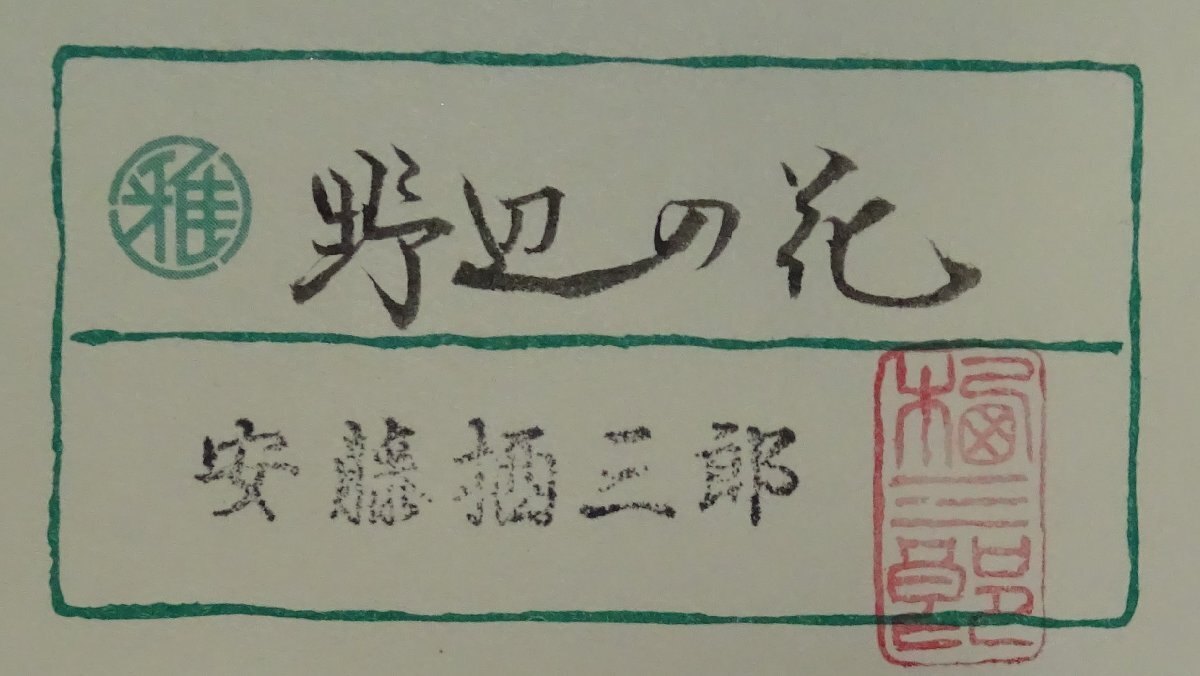 雅
野辺の花
安藤栖三郎
栖三郎